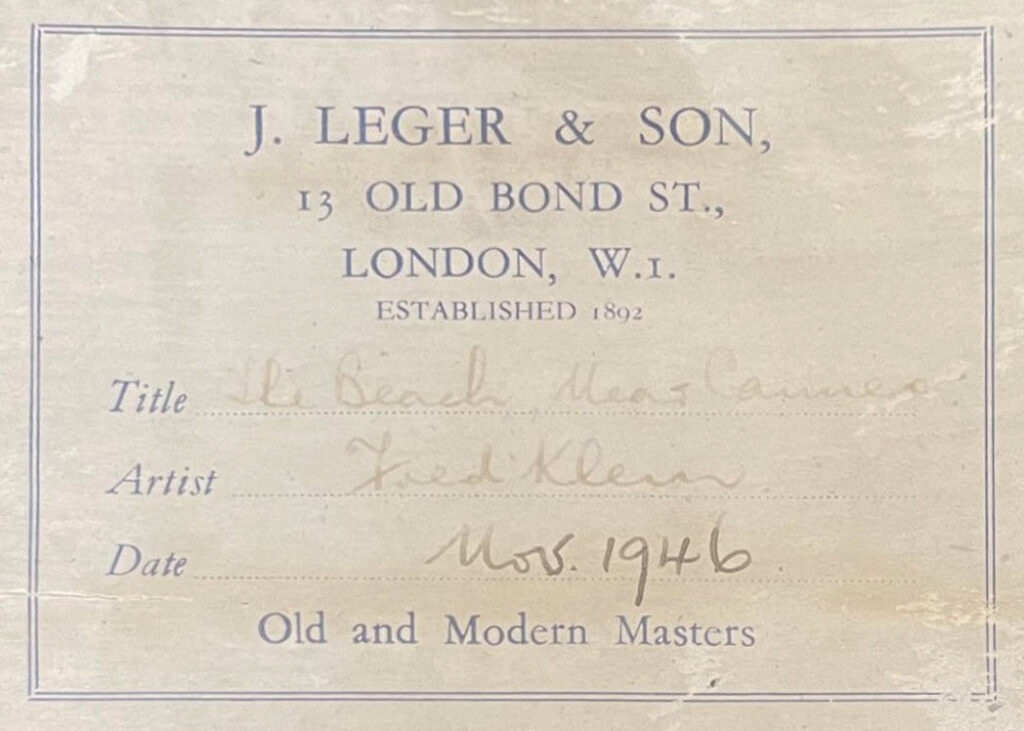 J. LEGER & SON,
13 OLD BOND ST.,
LONDON, W.1.
ESTABLISHED 1892
Title The Beach, Near Cannes.
Artist Fred Klein
Date Nov. 1946.
Old and Modern Masters